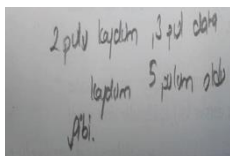 2 pulu kaydım, 3 pul daha
kaydım 5 pulum oldu
gibi.